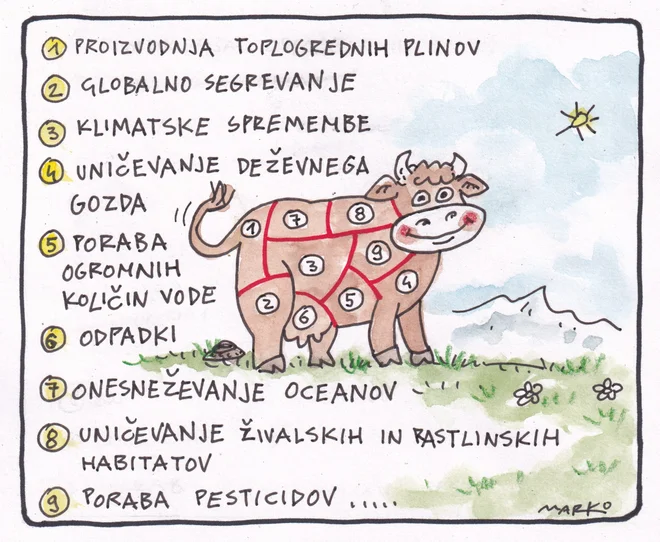 1 PROIZVODNJA TOPLOGREDNIH PLINOV
2 GLOBALNO SEGREVANJE
3 KLIMATSKE SPREMEMBE
4 UNIČEVANJE DEŽEVNEGA
GOZDA
5 PORABA
OGROMNIH
KOLIČIN VODE
6 ODPADKI
7 ONESNEŽEVANJE OCEANOV
8 UNIČEVANJE ŽIVALSKIH IN RASTLINSKIH
HABITATOV
9 PORABA PESTICIDOV .....
1 7 8
3 9
2 6 5 4
MARKO